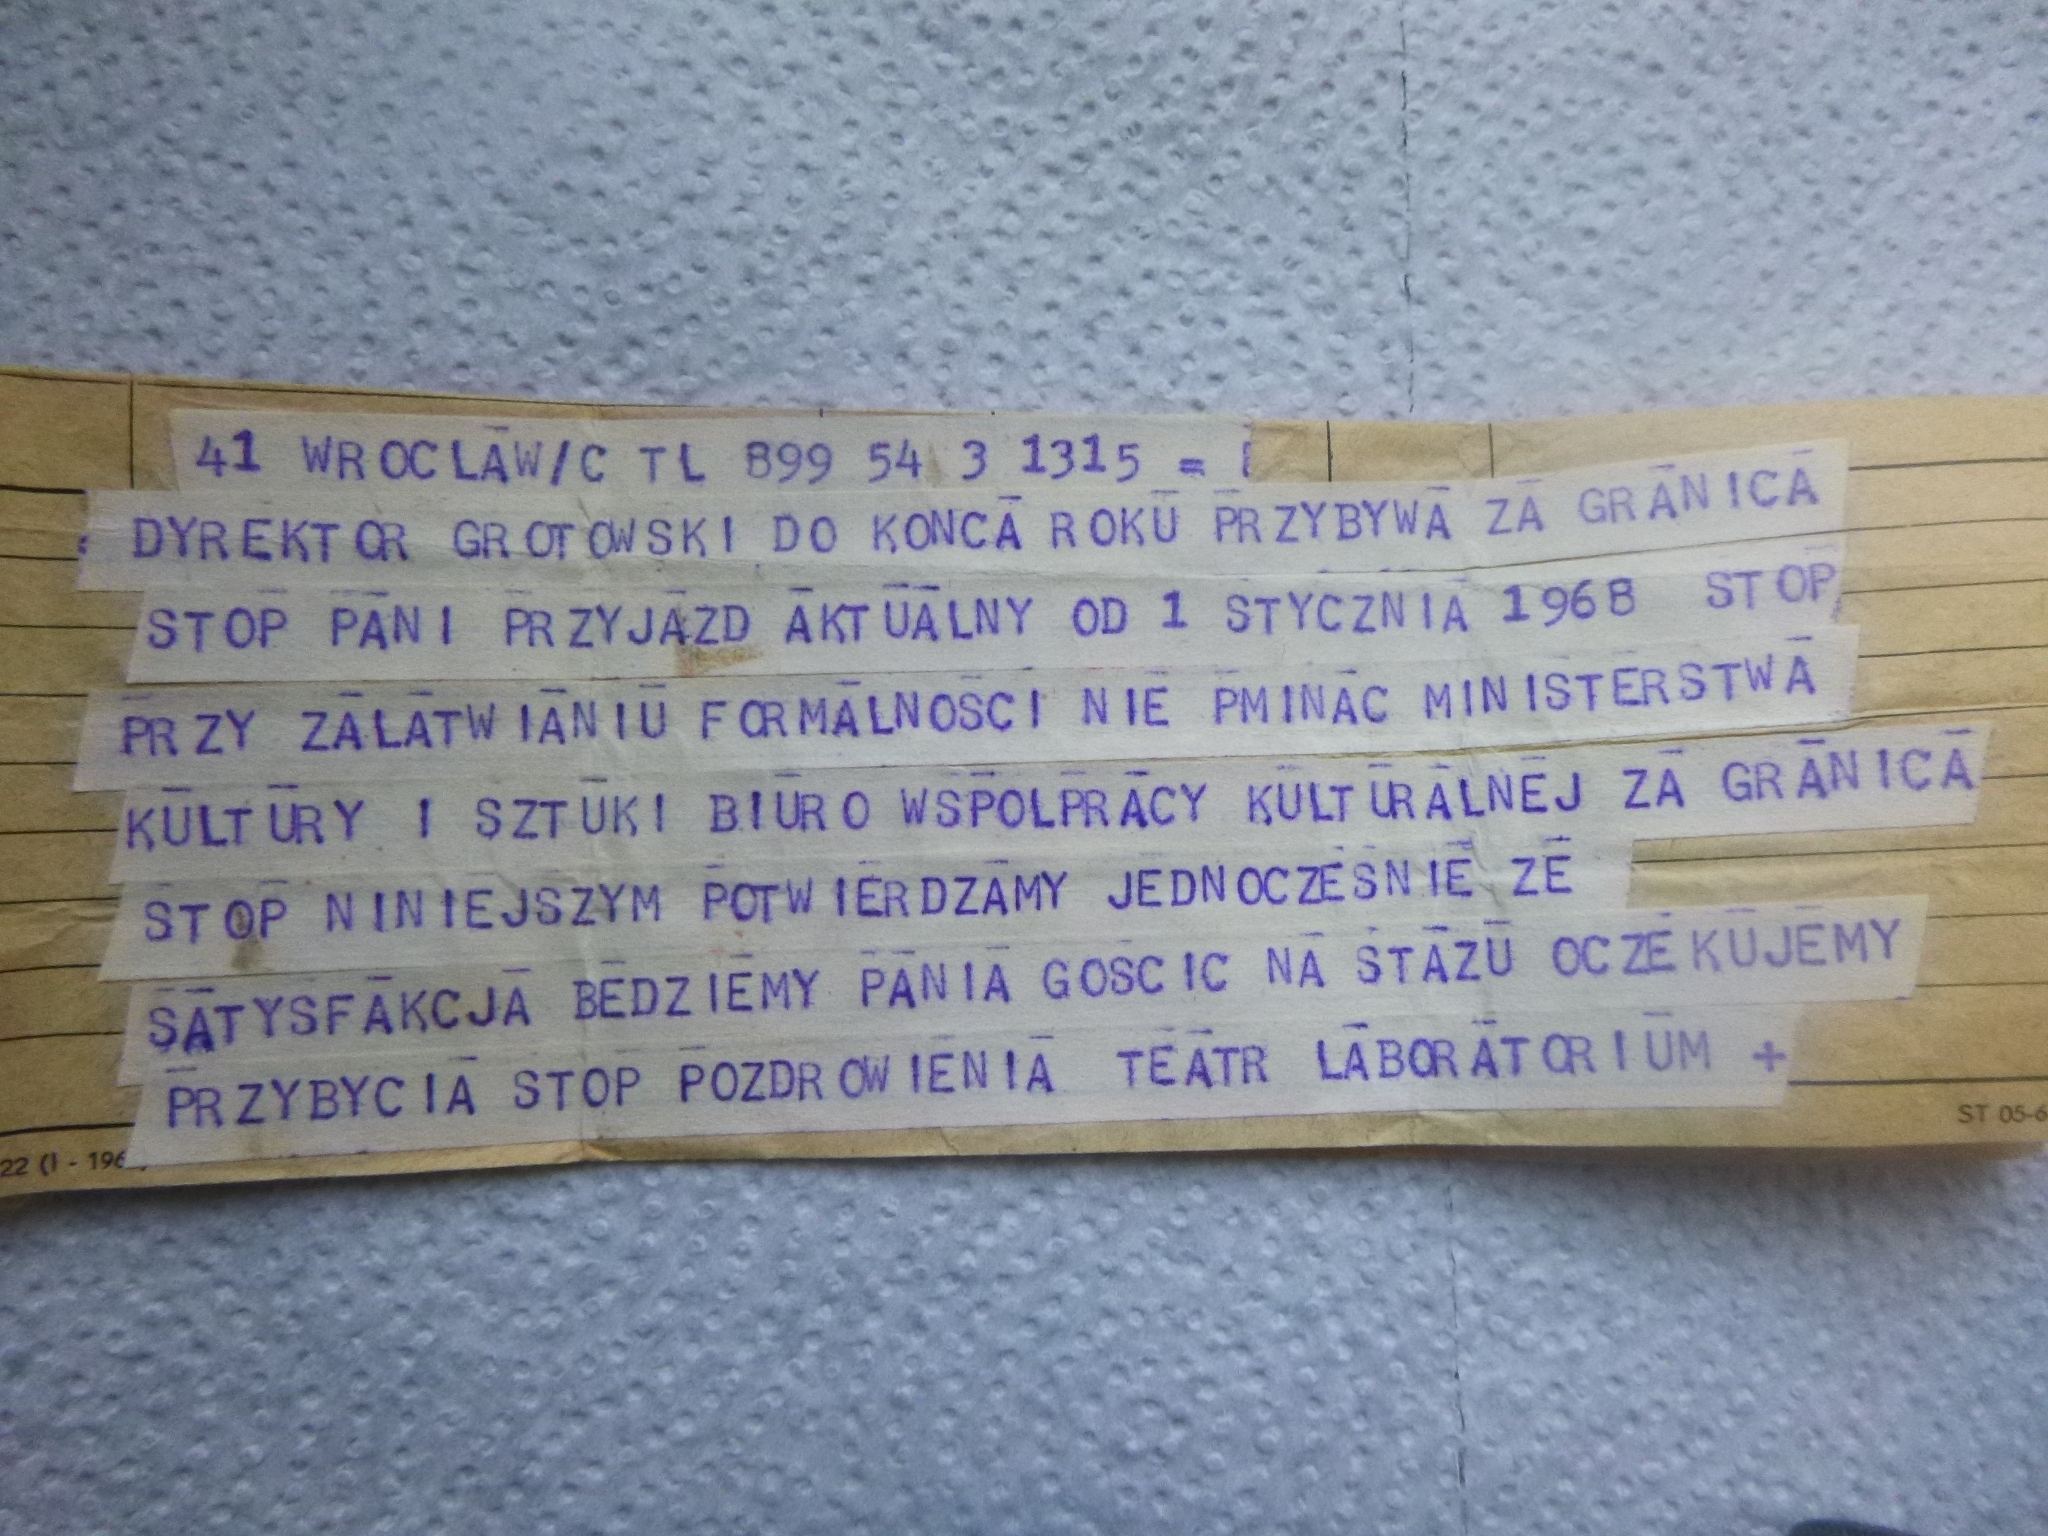 41 WROCLAW/C TL 899 54 3 1315 =
DYREKTOR GROTOWSKI DO KONCA ROKU PRZYBYWA ZA GRANICA
STOP PANI PRZYJAZD AKTUALNY OD 1 STYCZNIA 1968 STOP
PRZY ZALATWIANIU FORMALNOSCI NIE PMINAC MINISTERSTWA
KULTURY I SZTUKI BIURO WSPOLPRACY KULTURALNEJ ZA GRANICA
STOP NINIEJSZYM POTWIERDZAMY JEDNOCZESNIE ZE
SATYSFAKCJA BEDZIEMY PANIA GOSCIC NA STAZU OCZEKUJEMY
PRZYBYCIA STOP POZDROWIENIA TEATR LABORATORIUM +
ST 05-6
22 (I - 196